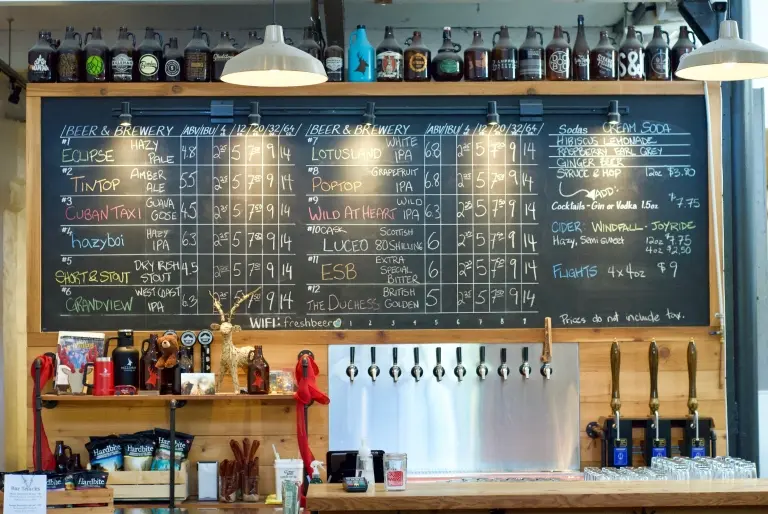 BEER & BREWERY ABV/IBU/4/12/20/32/64/
#1 ECLIPSE HAZY PALE 4.8 2.25 5 7.50 9 14
#2 TINTOP AMBER ALE 5.5 2.25 5 7.50 9 14
#3 CUBAN TAXI GUAVA GOSE 4.5 2.25 5 7.50 9 14
#4 hazyboi HAZY IPA 6.3 2.25 5 7.50 9 14
#5 SHORT & STOUT DRY IRISH STOUT 4.5 2.25 5 7.50 9 14
#6 GRANDVIEW WEST COAST IPA 6.3 2.25 5 7.50 9 14
BEER & BREWERY ABV/IBU/4/12/20/32/64/
#7 LOTUSLAND WHITE IPA 6.8 2.25 5 7.50 9 14
#8 POPTOP GRAPEFRUIT IPA 6.8 2.25 5 7.50 9 14
#9 WILD AT HEART WILD IPA 6.3 2.25 5 7.50 9 14
#10 CASK LUCEO SCOTTISH 80 SHILLING 6 2.25 5 7.50 9 14
#11 ESB EXTRA SPECIAL BITTER 6 2.25 5 7.50 9 14
#12 THE DUCHESS BRITISH GOLDEN 5 2.25 5 7.50 9 14
WIFI: freshbeer
1 2 3 4 5 6 7 8 9
Sodas CREAM SODA
HIBISCUS LEMONADE
RASPBERRY EARL GREY
GINGER BEER
SPRUCE & HOP 12oz $3.70
ADD:
Cocktails - Gin or Vodka 1.5oz $7.75
CIDER: WINDFALL - JOYRIDE
Hazy, Semi sweet 12oz $7.75
4oz $2.50
FLIGHTS 4 x 4oz $9
Prices do not include tax.
S&
Hardbite
Hardbite
Hardbite